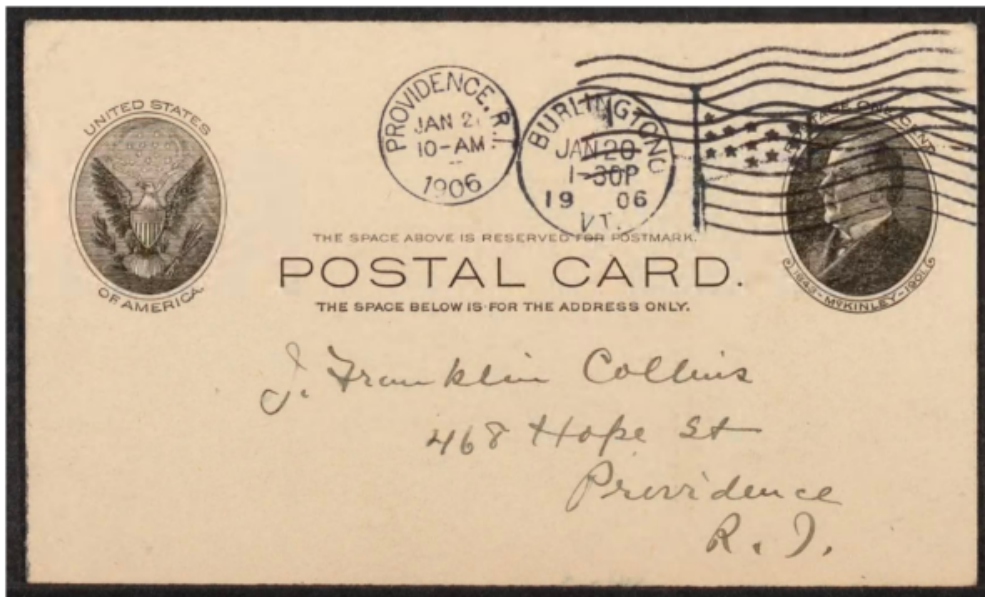 UNITED STATES
OF AMERICA.
PROVIDENCE, R.I.
JAN 2
10-AM
1906
BURLINGTON
JAN 20
1-30P
19 06
VT.
POSTAGE ONE CENT
1843-McKINLEY-1901
THE SPACE ABOVE IS RESERVED FOR POSTMARK.
POSTAL CARD.
THE SPACE BELOW IS FOR THE ADDRESS ONLY.
J. Franklin Collins
468 Hope St
Providence
R. I.